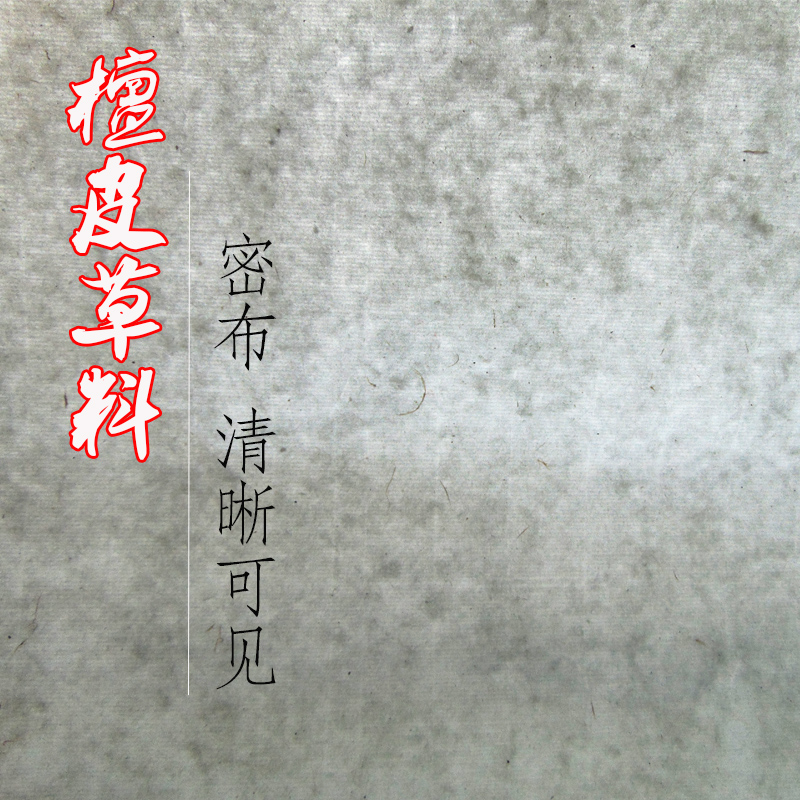 檀皮草料
密布 清晰可见